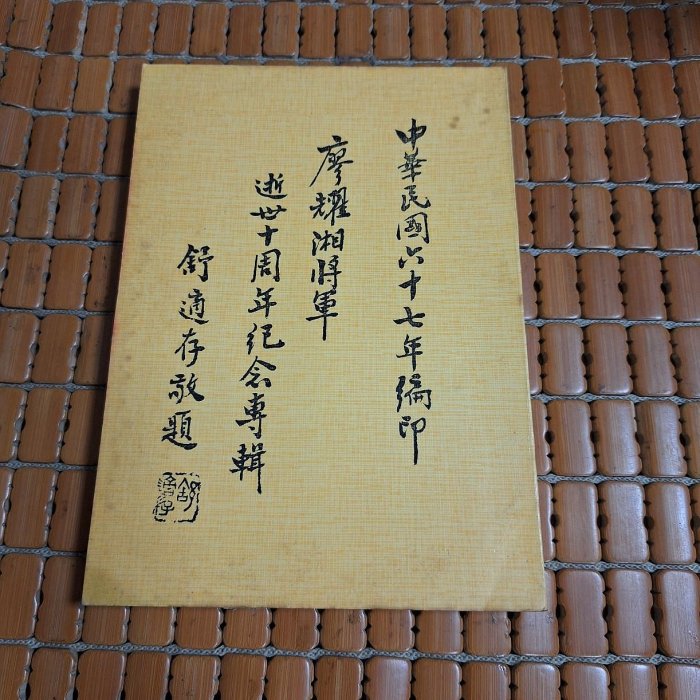 中華民國六十七年編印
廖耀湘將軍
逝世十周年紀念專輯
舒適存敬題
舒適存